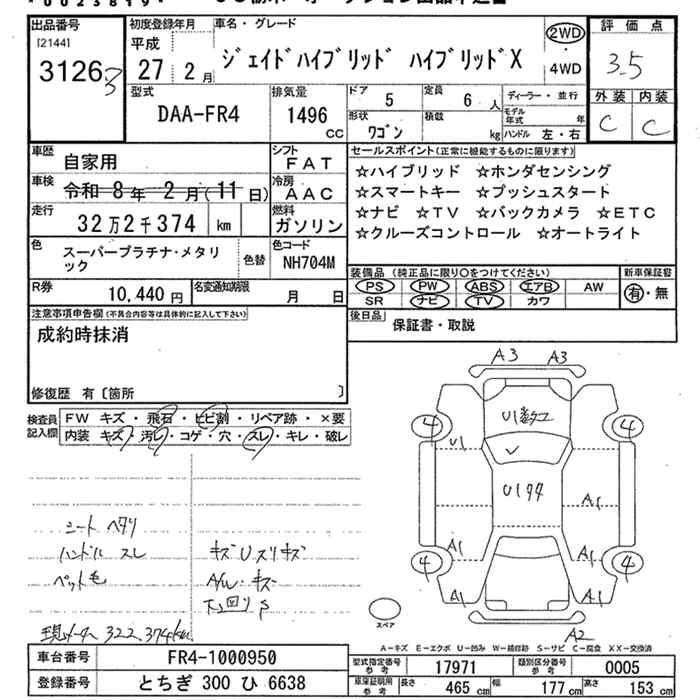 *0023819*
出品番号
[2144]
3126
初度登録年月
車名・グレード
平成
27年 2月
ジェイドハイブリッド ハイブリッドX
2WD
4WD
評価点
3.5
外装 内装
C C
型式
DAA-FR4
排気量
1496 CC
ドア 5
定員 6人
形状 ワゴン
積載 kg
ディーラー・並行
モデル年式 年
ハンドル 左・右
車歴 自家用
シフト FAT
車検 令和 8年 2月(11日)
冷房 AAC
走行 32万2千374 km
燃料 ガソリン
色 スーパープラチナ・メタリック
色替
色コード NH704M
R券 10,440円
名変通知期限 月 日
セールスポイント(正常に機能するものに限ります)
☆ハイブリッド ☆ホンダセンシング
☆スマートキー ☆プッシュスタート
☆ナビ ☆TV ☆バックカメラ ☆ETC
☆クルーズコントロール ☆オートライト
装備品 (純正品に限り○をつけてください)
PS PW ABS エアB AW
SR ナビ TV カワ
新車保証書
有・無
後日品 保証書・取説
注意事項申告欄(不具合内容等は具体的に記入して下さい)
成約時抹消
修復歴 有〔箇所 〕
検査員記入欄
FW キズ・飛石・ヒビ割・リペア跡・×要
内装 キズ・汚レ・コゲ・穴・スレ・キレ・破レ
シート ヘタリ
ハンドル スレ
ペット毛
キズUスリキズ
A/W・キズ
下回りS
現メーター 322,374km
A3 A3
U1
4 4
U1
A1
A1 A1
4 4
A1 A1
A2
スペア
A-キズ E-エクボ U-凹み W-補修跡 S-サビ C-腐食 XX-交換済
車台番号 FR4-1000950
登録番号 とちぎ 300 ひ 6638
型式指定番号 参考 17971
類別区分番号 参考 0005
車庫証明用 参考 長さ 465 cm 幅 177 cm 高さ 153 cm